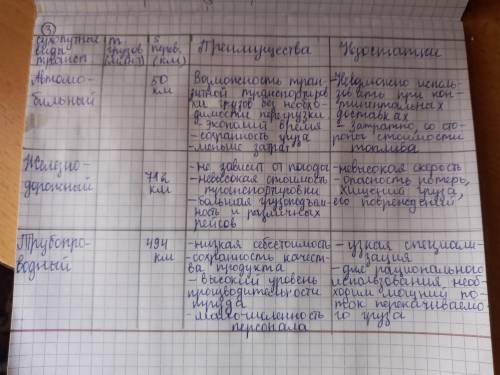 3
Сухопутные виды трансп.
m грузов (млн т)
S перев. (км)
Преимущества
Недостатки
Автомо-
бильный
50
км
Возможность тран-
зитной транспортиров
ки грузов без необхо-
димости перегрузки
- экономия время
- сохранность груза
- меньше затрат
- Невозможно исполь-
зовать при кон-
тинентальных
доставках
- затратно, со сто-
роны стоимости
топлива
Железно-
дорожный
712
км
- не зависит от погоды
- невысокая стоимость
транспортировки
- большая грузоподъем-
ность и различных
рейсов
- невысокая скорость
- опасность потерь,
хищений груза,
его повреждений
Трубопро-
водный
494
км
- низкая себестоимость
- сохранность качест-
ва продукта
- высокий уровень
производительности
труда
- малочисленность
персонала
- узкая специали-
зация
- для рационального
использования необ-
ходим мощный по-
ток перекачиваемо
го груза